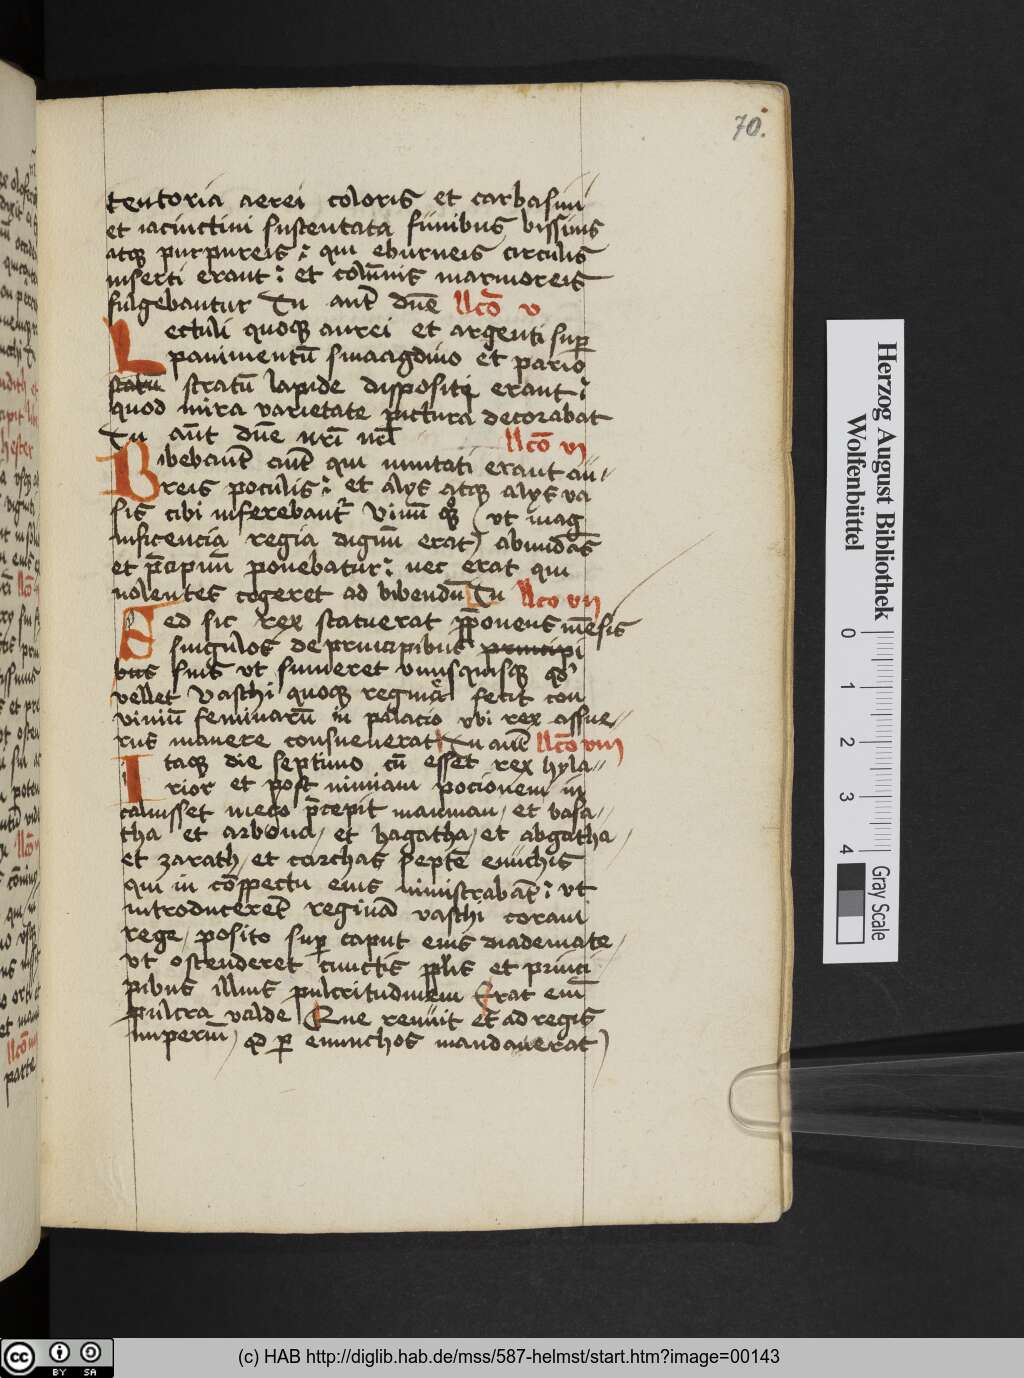 70.
tentoria aerei coloris et carbasini
et iacinctini sustentata funibus bissinis
atqꝫ purpureis : qui eburneis circulis
inserti erant : et colūnis marmoreis
fulgebantur Tu aut̄ dn̄e llc̄o v
Lectuli quoqꝫ aurei et argenti suꝑ
pauimentū smaragdino et pario
stratu stratū lapide dispositi erant :
quod mira varietate pictura decorabat
Tu aūt dn̄e nr̄i llc̄o vi
Bibebant aūt qui inuitati erant au//
reis poculis : et alys atqꝫ alys va
sis cibi inferebant᷑ Vinū qꝫ (ut mag
nificencia regia dignū erat) abundās
et p̄cipuū ponebatur : nec erat qui
nolentes cogeret ad bibendū Tu llco vii
Sed sic rex statuerat p̄ponens mēsis
singulos de principibus principi
bus suis ut sumeret vnusquisqꝫ qd᷑
vellet Vaschi quoqꝫ regina fecit con
viuiū feminarū in palacio vbi rex assue//
rus manere consueuerat Tu aut̄ llc̄o viii
Itaqꝫ die septimo cū esset rex hyla//
rior et post nimiam pocionem in
caluisset mero p̄cepit mauman / et basa/
tha et arbona / et hagatha / et abgatha /
et zarath / et carchas septē enuchis
qui in cōspectu eius ministrabāt : ut
introducerēt reginā vaschi coram
rege / posito suꝑ caput eius diademate /
ut ostenderet cunctis pl̄is et princi
pibus illius pulcritudinem Erat eni̅
pulcra valde Que renuit et ad regis
imperiū / qd ꝑ enuuchos mandauerat /
Herzog August Bibliothek
Wolfenbüttel
0
1
2
3
4
Gray Scale
cc BY SA
(c) HAB http://diglib.hab.de/mss/587-helmst/start.htm?image=00143